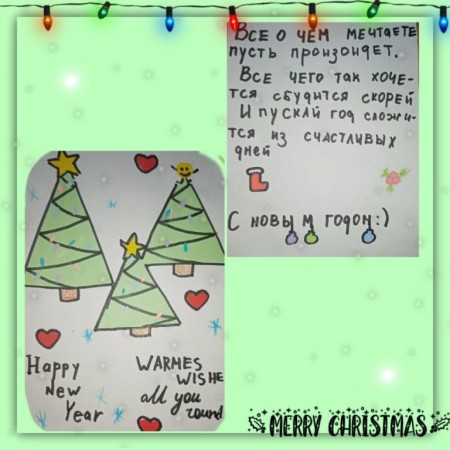 Все о чём мечтаете
пусть произойдет.
Все чего так хоче-
тся сбудится скорей
И пускай год сложи-
тся из счастливых
дней
С новым годом:)
Happy
New
Year
WARMES
WISHE
all you
round
MERRY CHRISTMAS